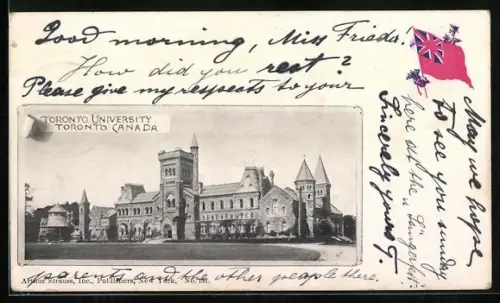 Good morning, Miss Frieda.
How did you rest?
Please give my respects to your
TORONTO UNIVERSITY
TORONTO CANADA
Arthur Strauss, Inc., Publishers, New York, No.
parents and the other people there.
May we hope
to see you sunday
here at the
Sincerely yours,